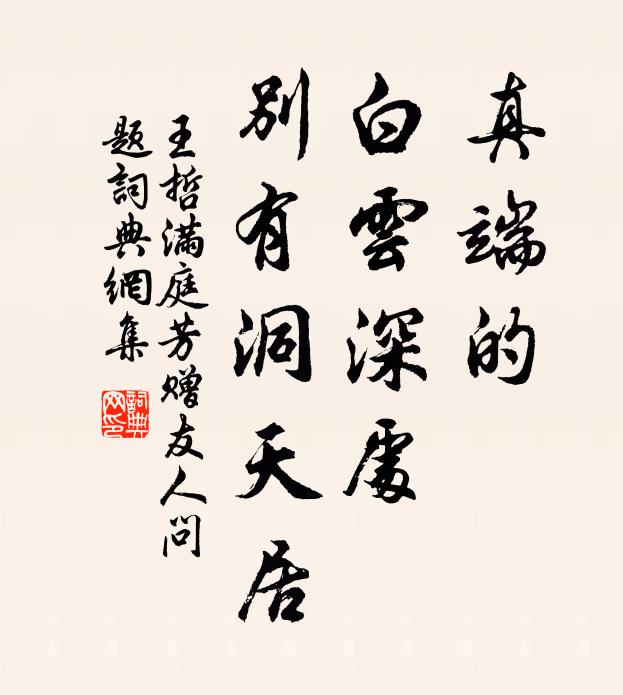 真端的
白雲深處
別有洞天居
王哲满庭芳赠友人问
题詞典網集
詞典
网印